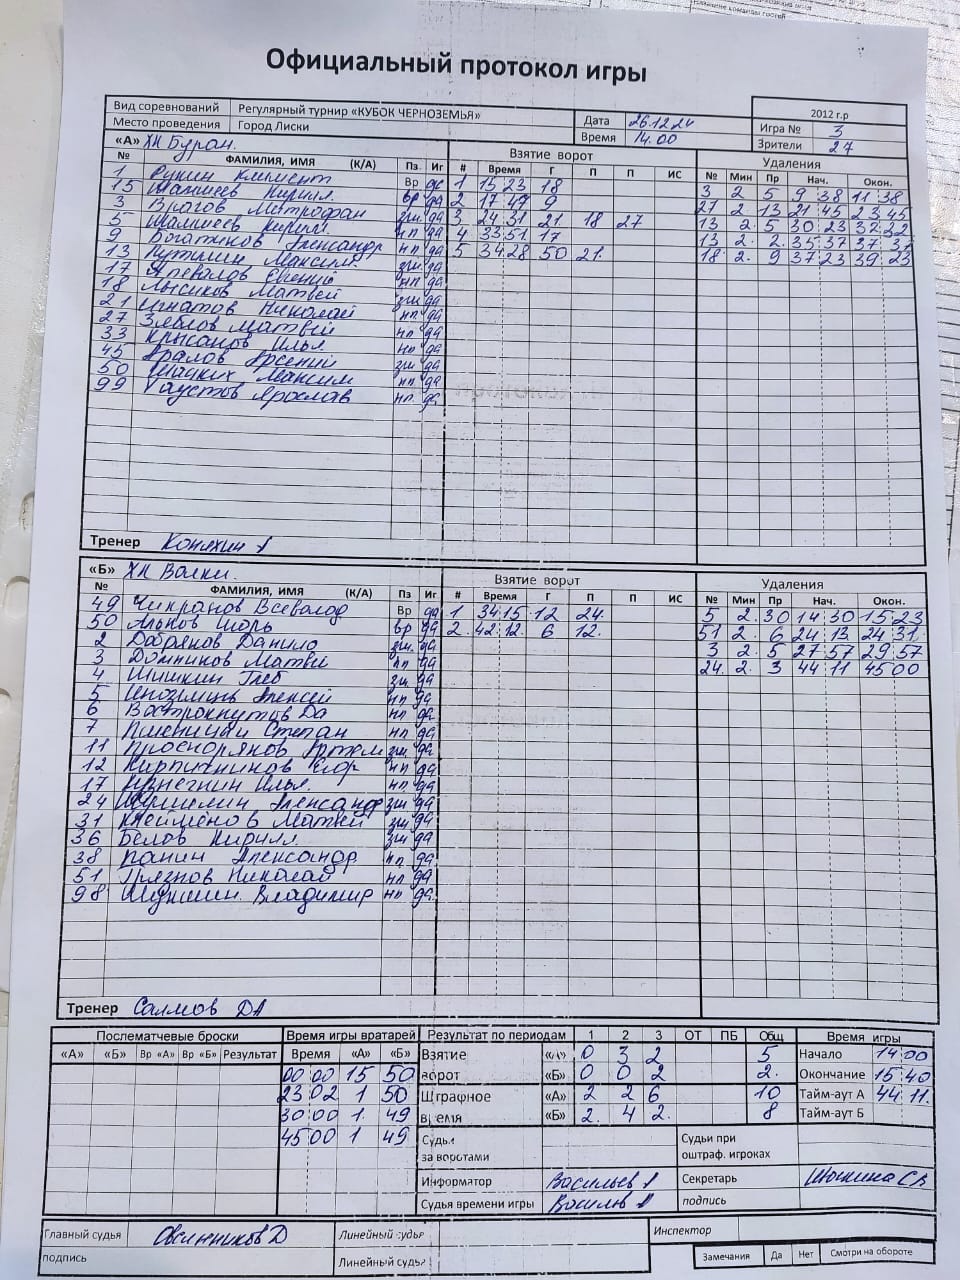 Официальный протокол игры
Вид соревнований Регулярный турнир «КУБОК ЧЕРНОЗЕМЬЯ» Дата 26.12.24 2012 г.р
Место проведения Город Лиски Время 14.00 Игра № 3
Зрители 27
«А» ХК Буран. Взятие ворот Удаления
№ ФАМИЛИЯ, ИМЯ (К/А) Пз Иг # Время Г П П ИС № Мин Пр Нач. Окон.
1 Климент Вр да 1 15 23 18 3 2 5 9 38 11 38
15 Кирилл вр да 2 17 47 9 27 2 13 21 45 23 45
3 Влагов Митрофан зщ да 3 24 31 21 18 27 13 2. 5 30 23 32 22
5 Кирилл нп да 4 33 51 17 13 2. 2. 35 37 37 37
9 Богатиков Александр нп да 5 34 28 50 21. 18 2. 9 37 23 39 23
13 Максим. зщ да
17 Евгений нп да
18 Лысиков Матвей зщ да
21 Игнатов Николай нп да
27 Зяблов Матвей нп да
33 Крысанов Илья нп да
45 Аралов Арсений зщ да
50 Шацких Максим нп да
99 Гаустов Ярослав нп. да
Тренер Коняхин А
«Б» ХК Волки. Взятие ворот Удаления
№ ФАМИЛИЯ, ИМЯ (К/А) Пз Иг # Время Г П П ИС № Мин Пр Нач. Окон.
49 Чикранов Всеволод Вр да 1 34 15 12 24. 5 2. 30 14 30 15 23
50 Альков Игорь вр да 2. 42 12. 6 12. 51 2. 6 24 13 24 31.
2 Данило зщ. да 3 2. 5 27 57 29 57
3 Домников Матвей нп да 24. 2. 3 44 11 45 00
4 Шишкин Глеб зщ да
5 Алексей нп да
6 Вострокнутов Да нп да.
7 Пшеничай Степан нп да
11 Артем зщ да
12 Кирпичников Егор нп да
17 Илья. нп да
24 Александр зщ да
31 Клейменов Матвей зщ да
36 Белов Кирилл. зщ да
38 Панин Александр нп да
51 Грязнов Николай нп да
98 Владимир нп да.
Тренер Салмов ДА
Послематчевые броски Время игры вратарей Результат по периодам 1 2 3 ОТ ПБ Общ Время игры
«А» «Б» Вр «А» Вр «Б» Результат Время «А» «Б» Взятие «А» 0 3 2 5 Начало 14 00
00 00 15 50 ворот «Б» 0 0 2 2. Окончание 15 40
23 02 1 50 Штрафное «А» 2 2 6 10 Тайм-аут А 44 11.
30 00 1 49 время «Б» 2. 4 2. 8 Тайм-аут Б
45 00 1 49 Судьи за воротами Судьи при оштраф. игроках
Информатор Васильев А Секретарь
Судья времени игры Васильев А подпись
Главный судья Овсянников Д Линейный судья Инспектор
подпись Линейный судья Замечания Да Нет Смотри на обороте